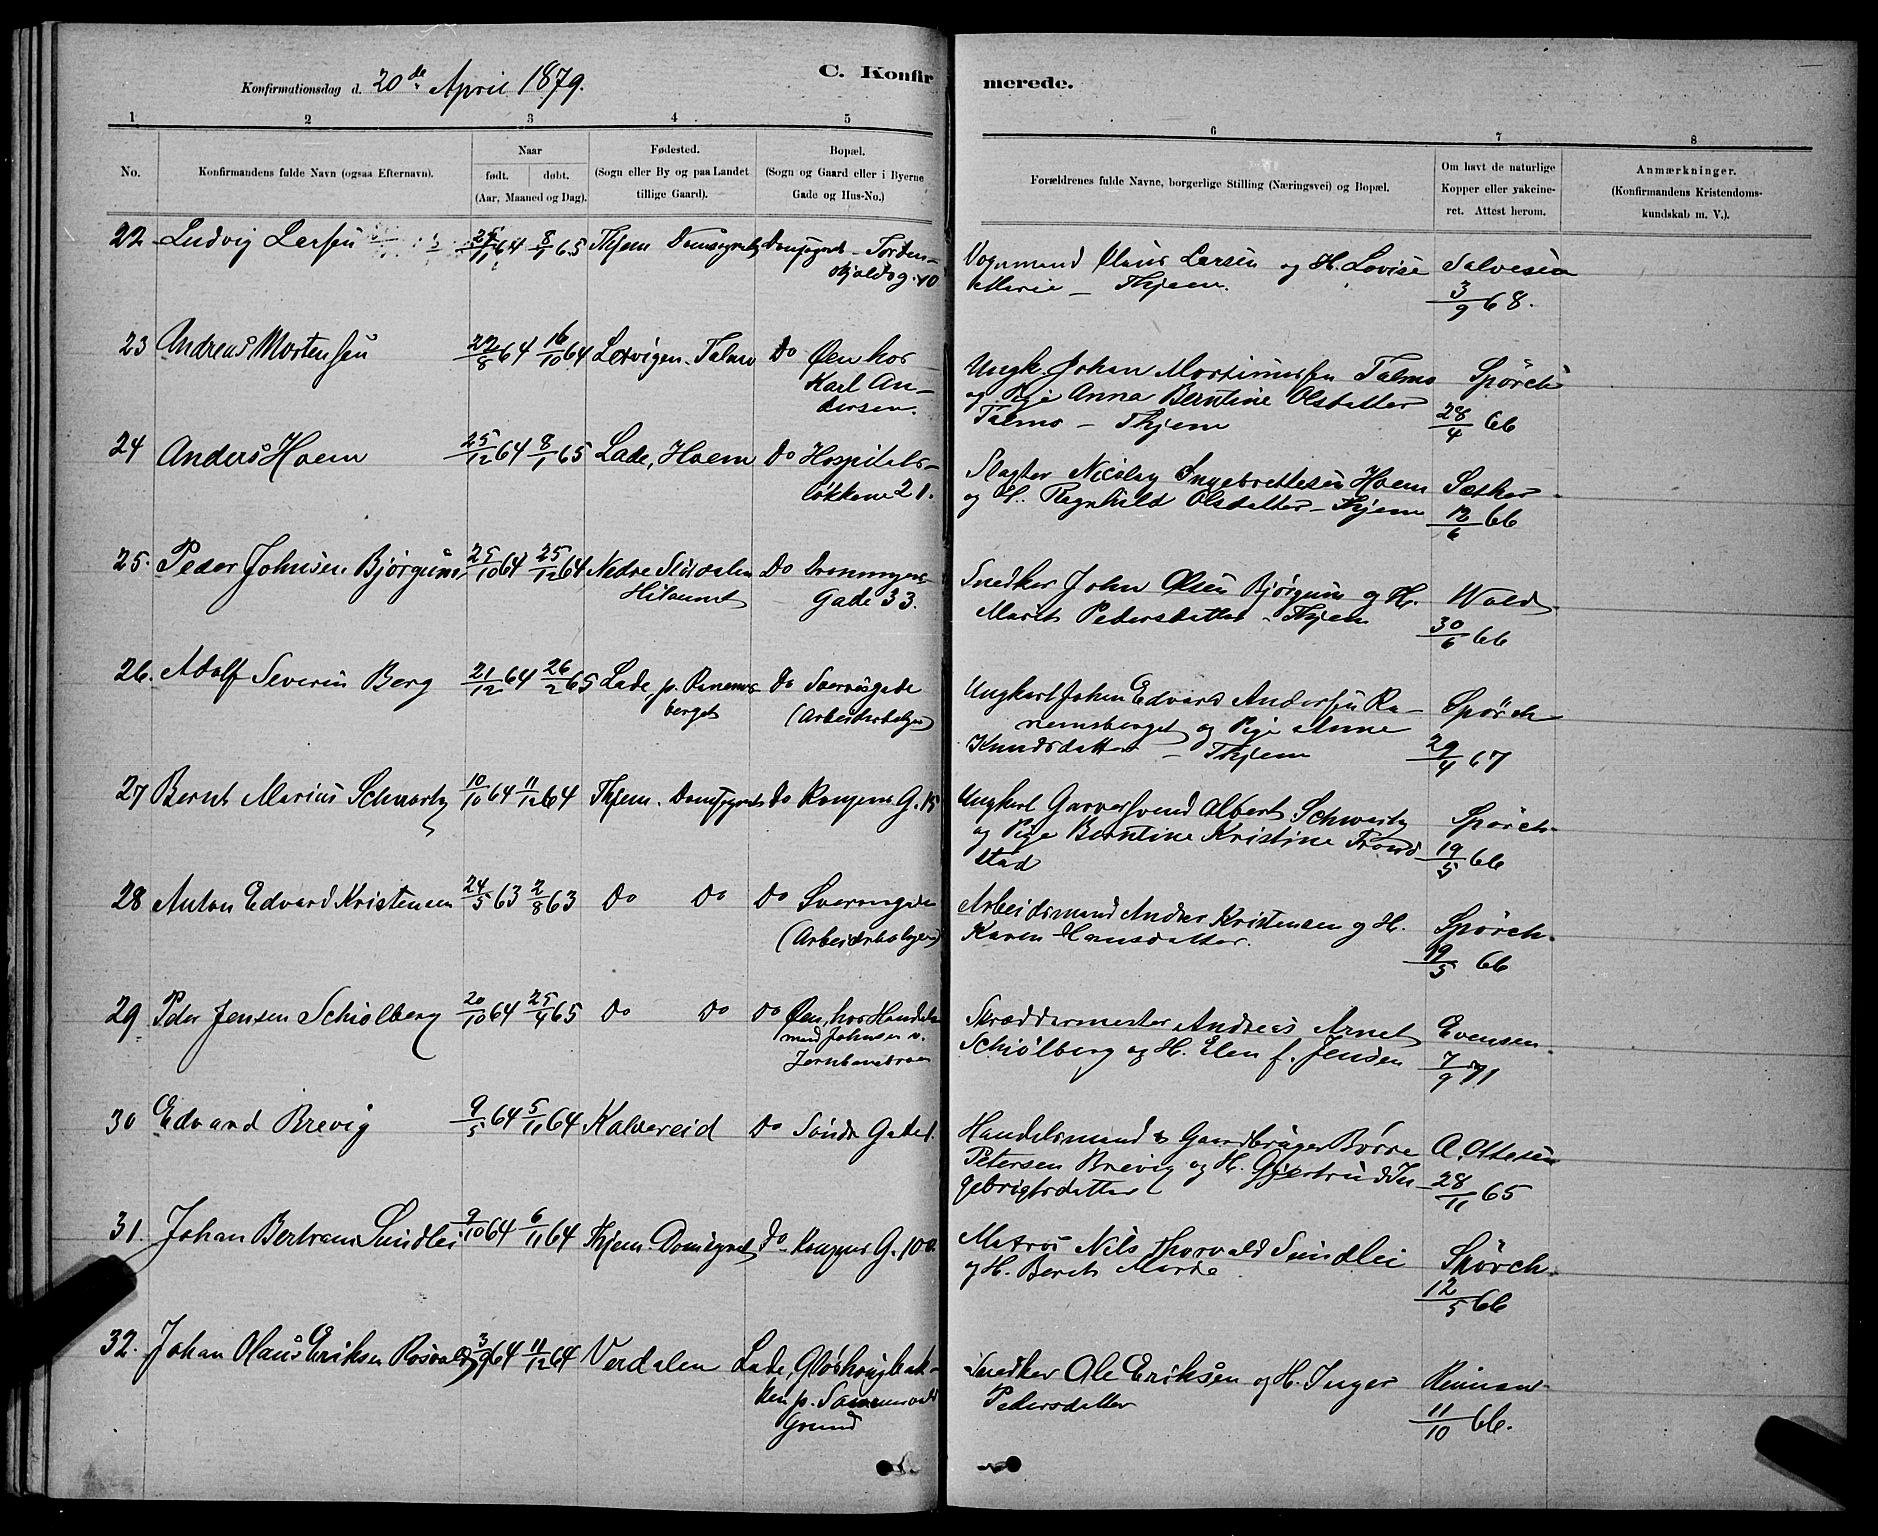 Konfirmationsdag d. 20de April 1879.
C. Konfir
merede.
1 2 3 4 5
6 7 8
No.
Konfirmandens fulde Navn (ogsaa Efternavn).
Naar
født. døbt.
(Aar, Maaned og Dag).
Fødested.
(Sogn eller By og paa Landet
tillige Gaard).
Bopæl.
(Sogn og Gaard eller i Byerne
Gade og Hus-No.)
Forældrenes fulde Navne, borgerlige Stilling (Næringsvei) og Bopæl.
Om havt de naturlige
Kopper eller vakcine-
ret. Attest herom.
Anmærkninger.
(Konfirmandens Kristendoms-
kundskab m. V.).
22 Ludvig Larsen 64 8/1 65 Thjem Domsognet Domsognet Torden-
skjoldsg. 10
Vognmand Claus Larsen og H. Lovise Salvesen
Marie - Thjem. 3/9 68.
23 Andreas Mortensen 22/8 64 16/10 64 Lexvigen. Talmo Do Øen hos
Karl An-
dersen.
Ungk. Johan Mortinussen Talmo Spörck
og Pige Anna Berntine Olsdatter 28/4 66
Talmo - Thjem
24 Anders Haem 25/12 64 8/1 65 Lade, Haem Do Hospitals-
løkkene 21.
Slagter Nicolay Ingebrettesen Haem Sæther
og H. Ragnhild Olsdatter - Thjem 12/6 66
25. Peder Johnsen Bjørgum 25/10 64 25/12 64 Nedre Stördalen Do Dronningens
Gade 33.
Snedker John Olsen Bjørgum og H. Wold
Marit Pedersdatter - Thjem 30/6 66
26. Adolf Severin Berg 21/12 64 26/2 65 Lade p. Ranems- Do Sverresgade
berget (Arbeiderboliger)
Ungkarl Johan Edvard Andersen Ra- Spörck
nemsberget og Pige Anne 29/4 67
Knudsdatter - Thjem
27 Bernt Marius Schwartz 10/10 64 11/12 64 Thjem. Domsognet Do Kongens G. 15
Ungkarl Garversvend Albert Schwartz Spörck
og Pige Berntine Kristine Trond- 19/5 66
stad
28 Anton Edvard Kristensen 24/5 63 2/8 63 Do Do Do Sverresgade
(Arbeiderboliger)
Arbeidsmand Andreas Kristensen og H. Spörck.
Karen Hansdatter. 19/5 66
29 Peder Jensen Schiølberg 20/10 64 25/4 65 Do Do Do Øen, hos Handels-
mand Johnsen v.
Jernbanebroen
Skræddermester Andreas Arnet Evensen
Schiølberg og H. Elen f. Jensen 7/9 71
30 Edvard Brevig 9/5 64 5/11 64 Kalvereid Do Søndre Gade 1.
Handelsmand & Gaardbruger Børre A. Ottesen
Petersen Brevig og H. Gjertrud In- 28/11 65
gebrigtsdatter
31. Johan Bertram Sundlei 9/10 64 6/11 64 Thjem. Domsognet Do Kongens G. 100.
Matros Nils Thorvald Sundlei Spörck.
og H. Berit Marie 12/5 66
32. Johan Olaus Eriksen 3/9 64 11/12 64 Verdalen Lade, Gløshaugbak-
ken p.
Grund
Snedker Ole Eriksen og H. Inger
Pedersdatter 11/10 66.